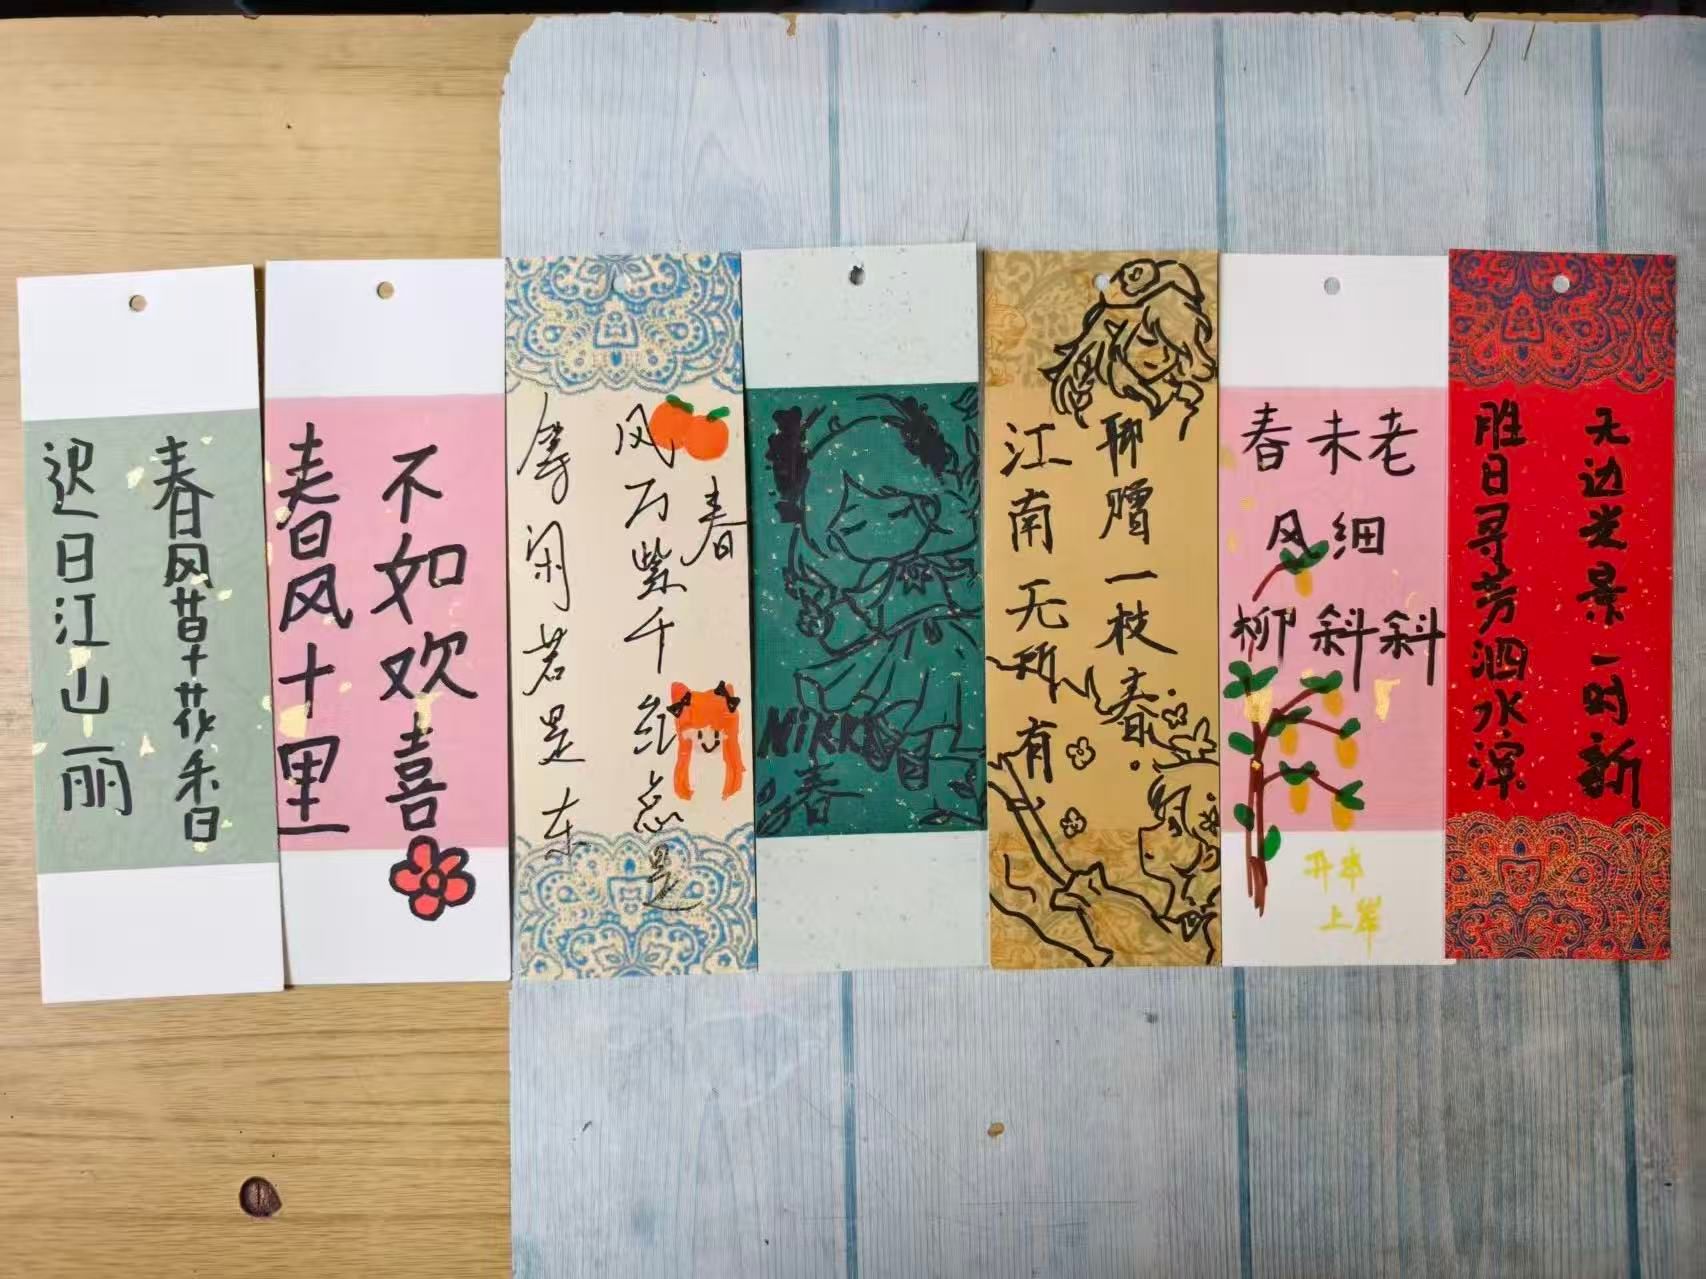 迟日江山丽
春风草花香
春风十里
不如欢喜
等闲若是东
风万紫千红总是
春
NiKKi
春
江南无所有
聊赠一枝春
春未老
风细
柳斜斜
升本
上岸
胜日寻芳泗水滨
无边光景一时新